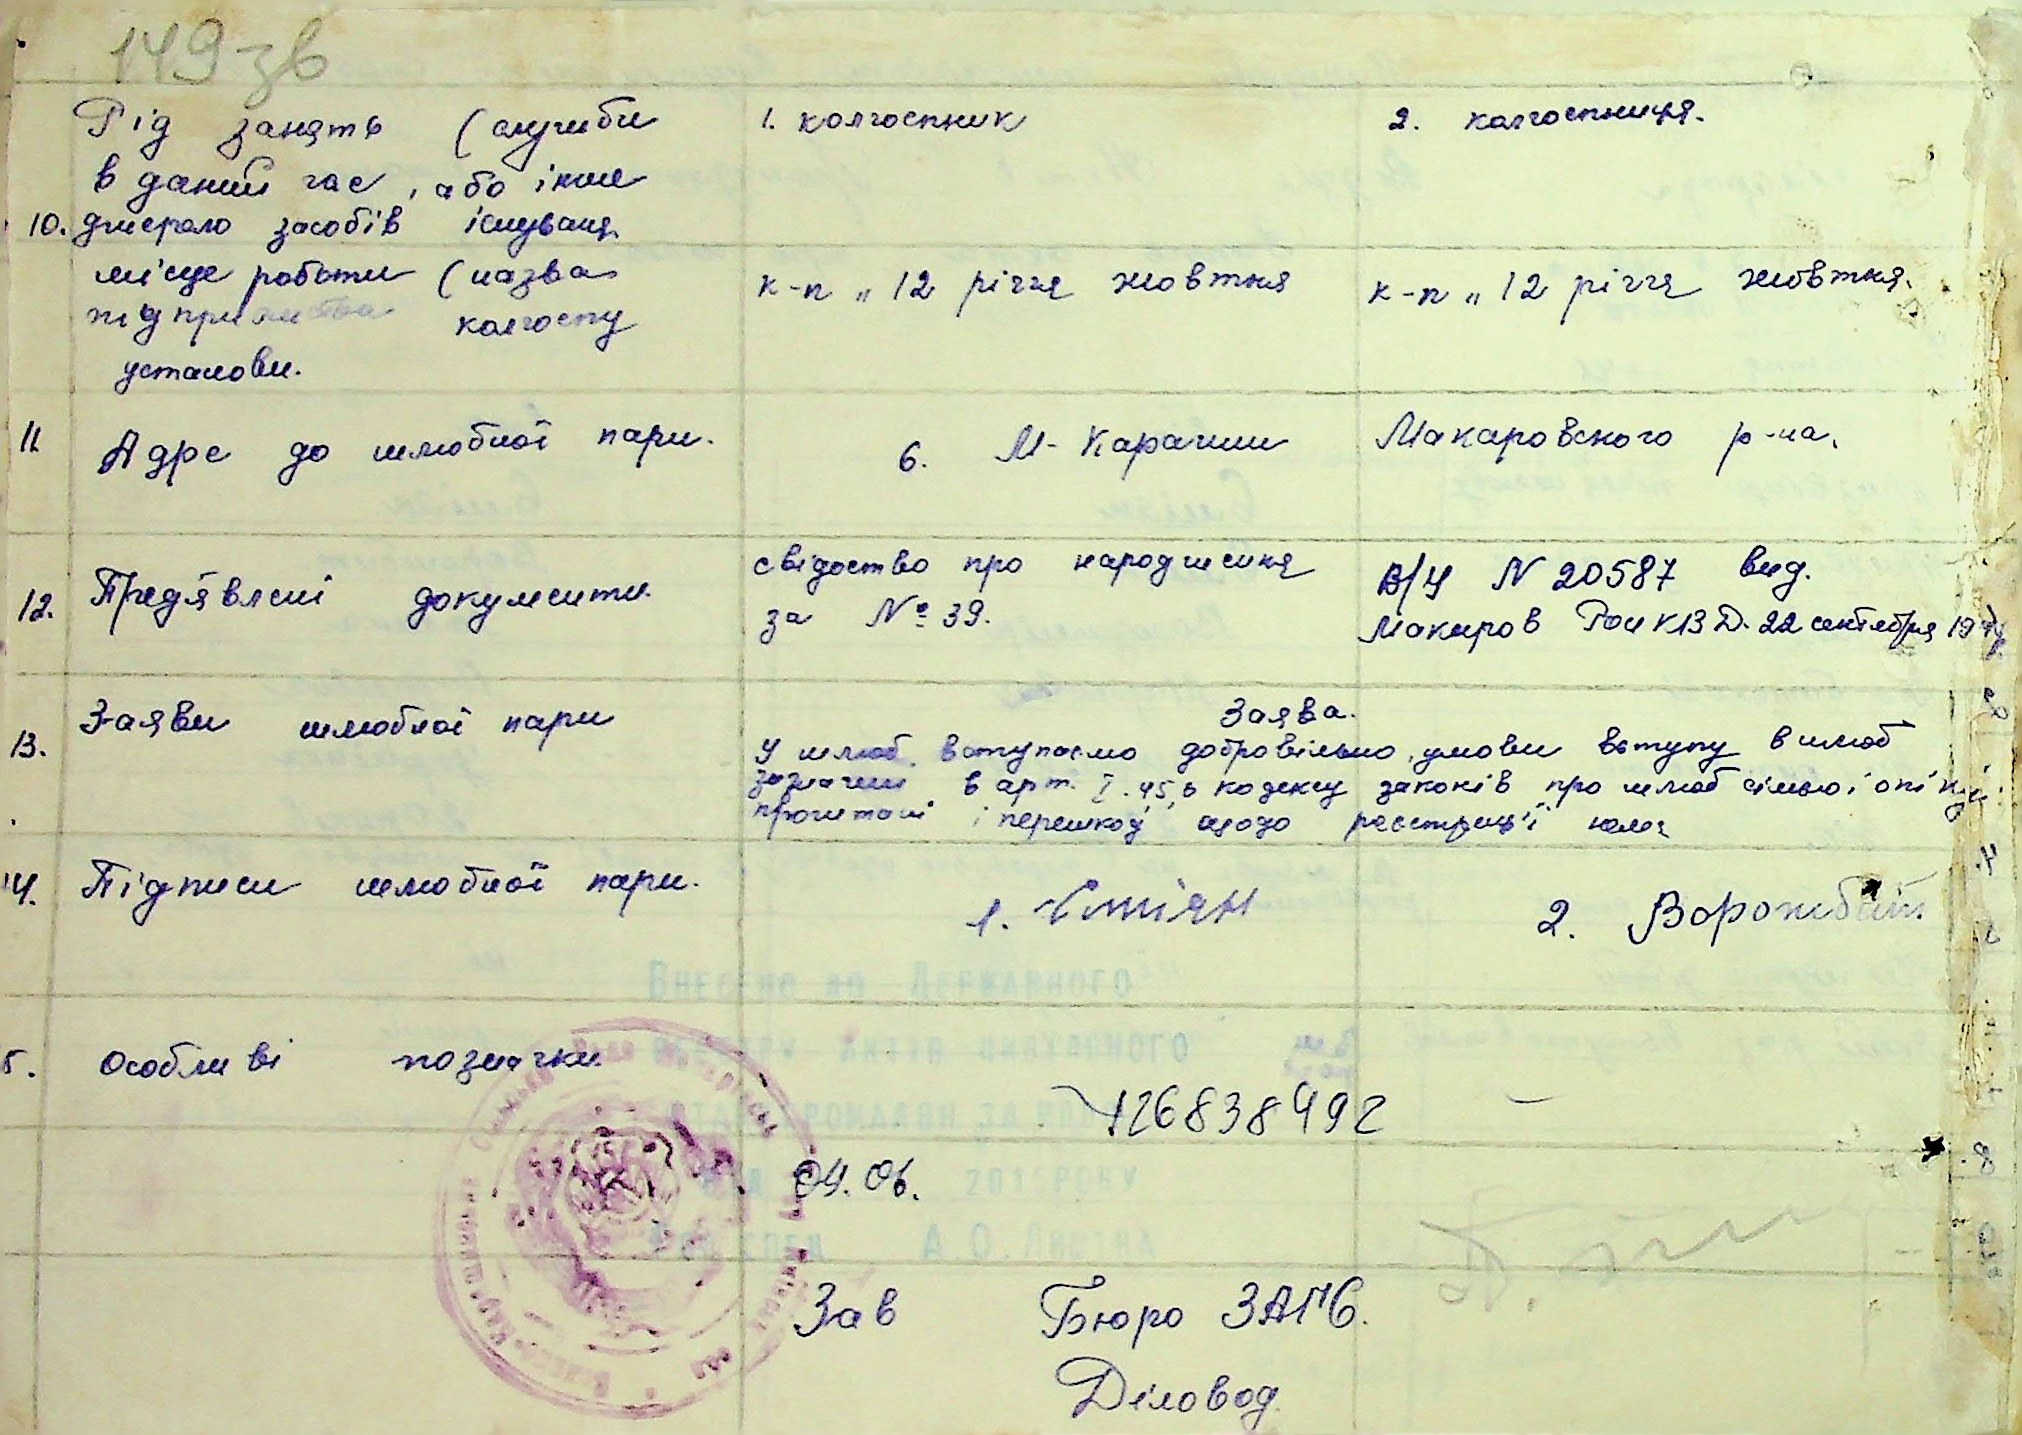 149 зв
Рід занять (служби
в даний час, або інше
10. джерало засобів існуваня
1. колгоспник
2. колгоспниця.
місце роботи (назва
підприємства колгоспу
установи.
к-п „12 річчя жовтня
к-п „12 річчя жовтня.
11 Адре до шлюбної пари.
с. М-Карашин
Макаровського р-на.
12. Предявлені документи.
свідоство про народженя
за № 39.
В/У N 20587 вид.
Макаров 22 сентября
13. Заяви шлюбної пари
Заява.
У шлюб вступаємо добровільно, умови вступу в шлюб
зазначени в арт. кодексу законів про шлюб сімью і опіку
прочитані і перешкод щодо реєстрації нема
14. Підписи шлюбної пари.
1. Єміян
2. Ворожбит
5. особливі позначки
Внесено до Державного
реєстру актів цивільного
стану громадян за №
126838492
—
04.06. 201 року
А.О. 
Зав Бюро ЗАГС.
Діловод